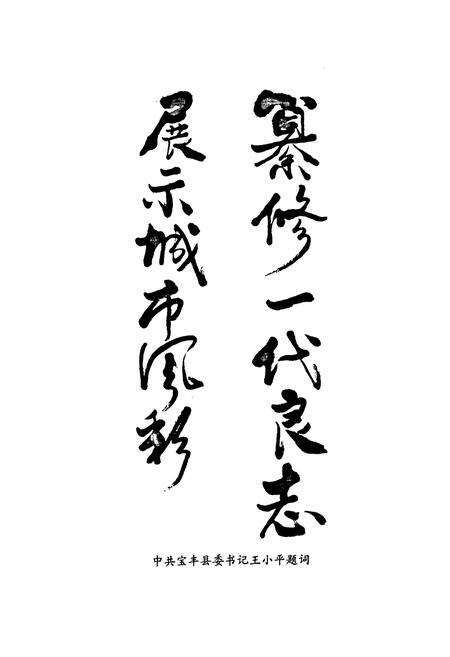 纂修一代良志
展示城市风彩
中共宝丰县委书记王小平题词